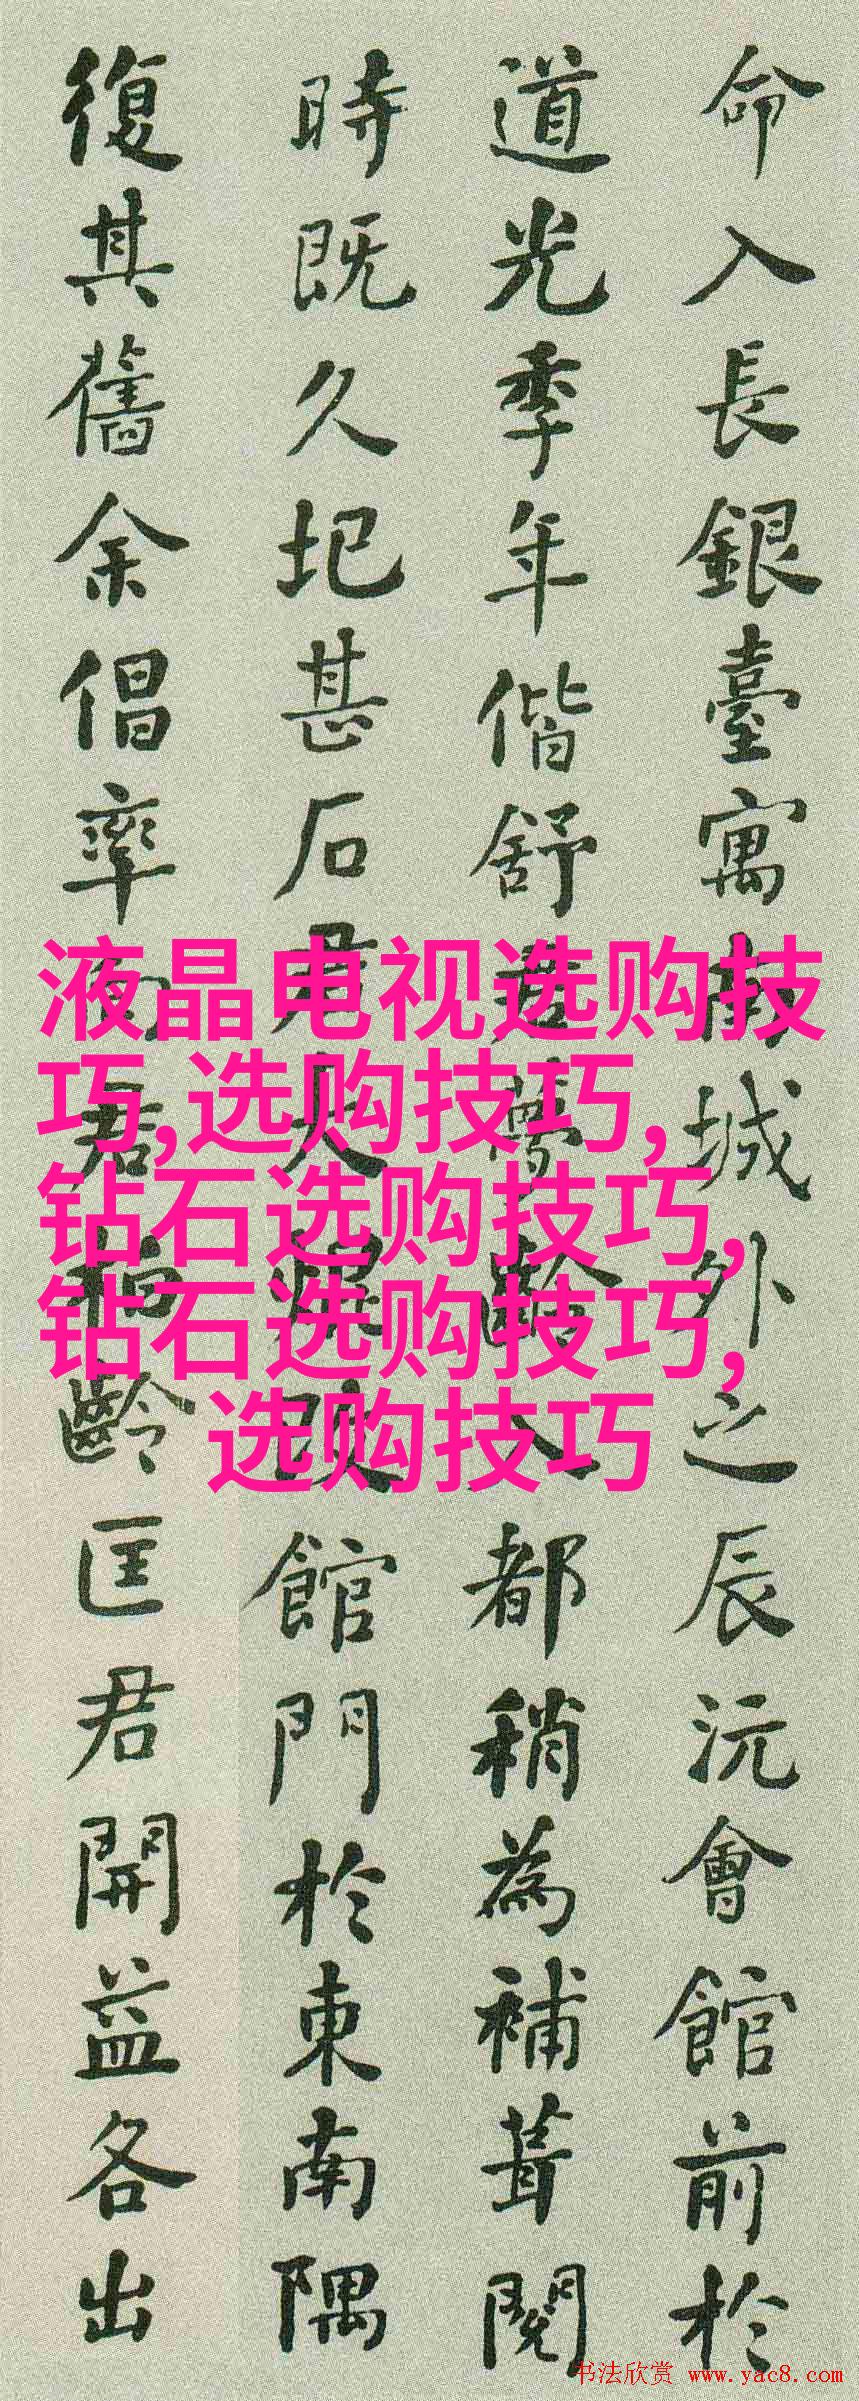 命入長銀臺寓南城外之辰沅會館前於
道光季年偕舒君夢齡入都稍為補葺閱
時既久圮甚石君大 改館門於東南隅
復其舊余倡率向君柏齡匡君開益各出
液晶电视选购技
巧,选购技巧,
钻石选购技巧,
钻石选购技巧,
选购技巧
书法欣赏 www.yac8.com